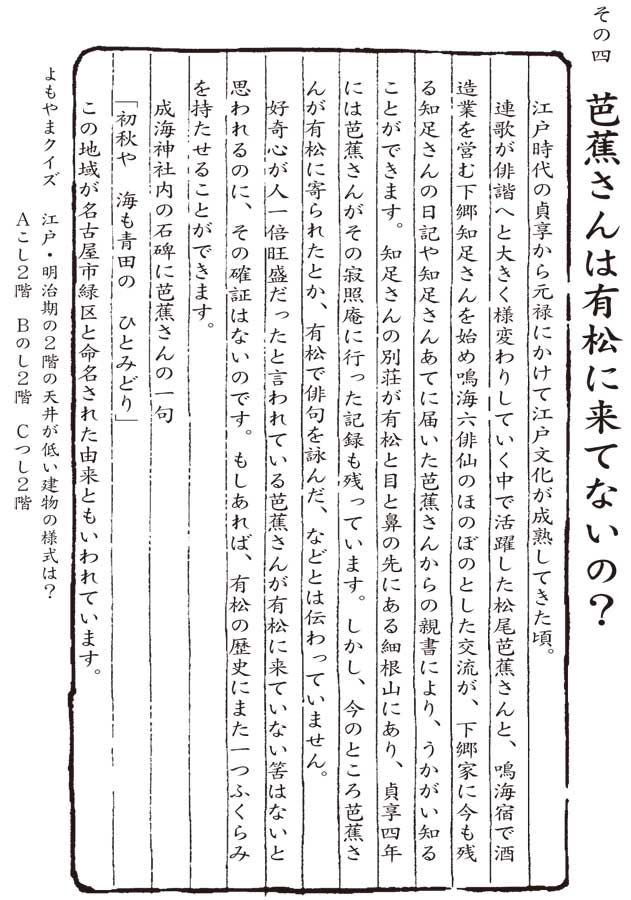 その四　芭蕉さんは有松に来てないの？
江戸時代の貞享から元禄にかけて江戸文化が成熟してきた頃。
連歌が俳諧へと大きく様変わりしていく中で活躍した松尾芭蕉さんと、鳴海宿で酒
造業を営む下郷知足さんを始め鳴海六俳仙のほのぼのとした交流が、下郷家に今も残
る知足さんの日記や知足さんあてに届いた芭蕉さんからの親書により、うかがい知る
ことができます。知足さんの別荘が有松と目と鼻の先にある細根山にあり、貞享四年
には芭蕉さんがその寂照庵に行った記録も残っています。しかし、今のところ芭蕉さ
んが有松に寄られたとか、有松で俳句を詠んだ、などとは伝わっていません。
好奇心が人一倍旺盛だったと言われている芭蕉さんが有松に来ていない筈はないと
思われるのに、その確証はないのです。もしあれば、有松の歴史にまた一つふくらみ
を持たせることができます。
成海神社内の石碑に芭蕉さんの一句
「初秋や　海も青田の　ひとみどり」
この地域が名古屋市緑区と命名された由来ともいわれています。
よもやまクイズ　江戸・明治期の２階の天井が低い建物の様式は？
Ａこし２階　Ｂのし２階　Ｃつし２階